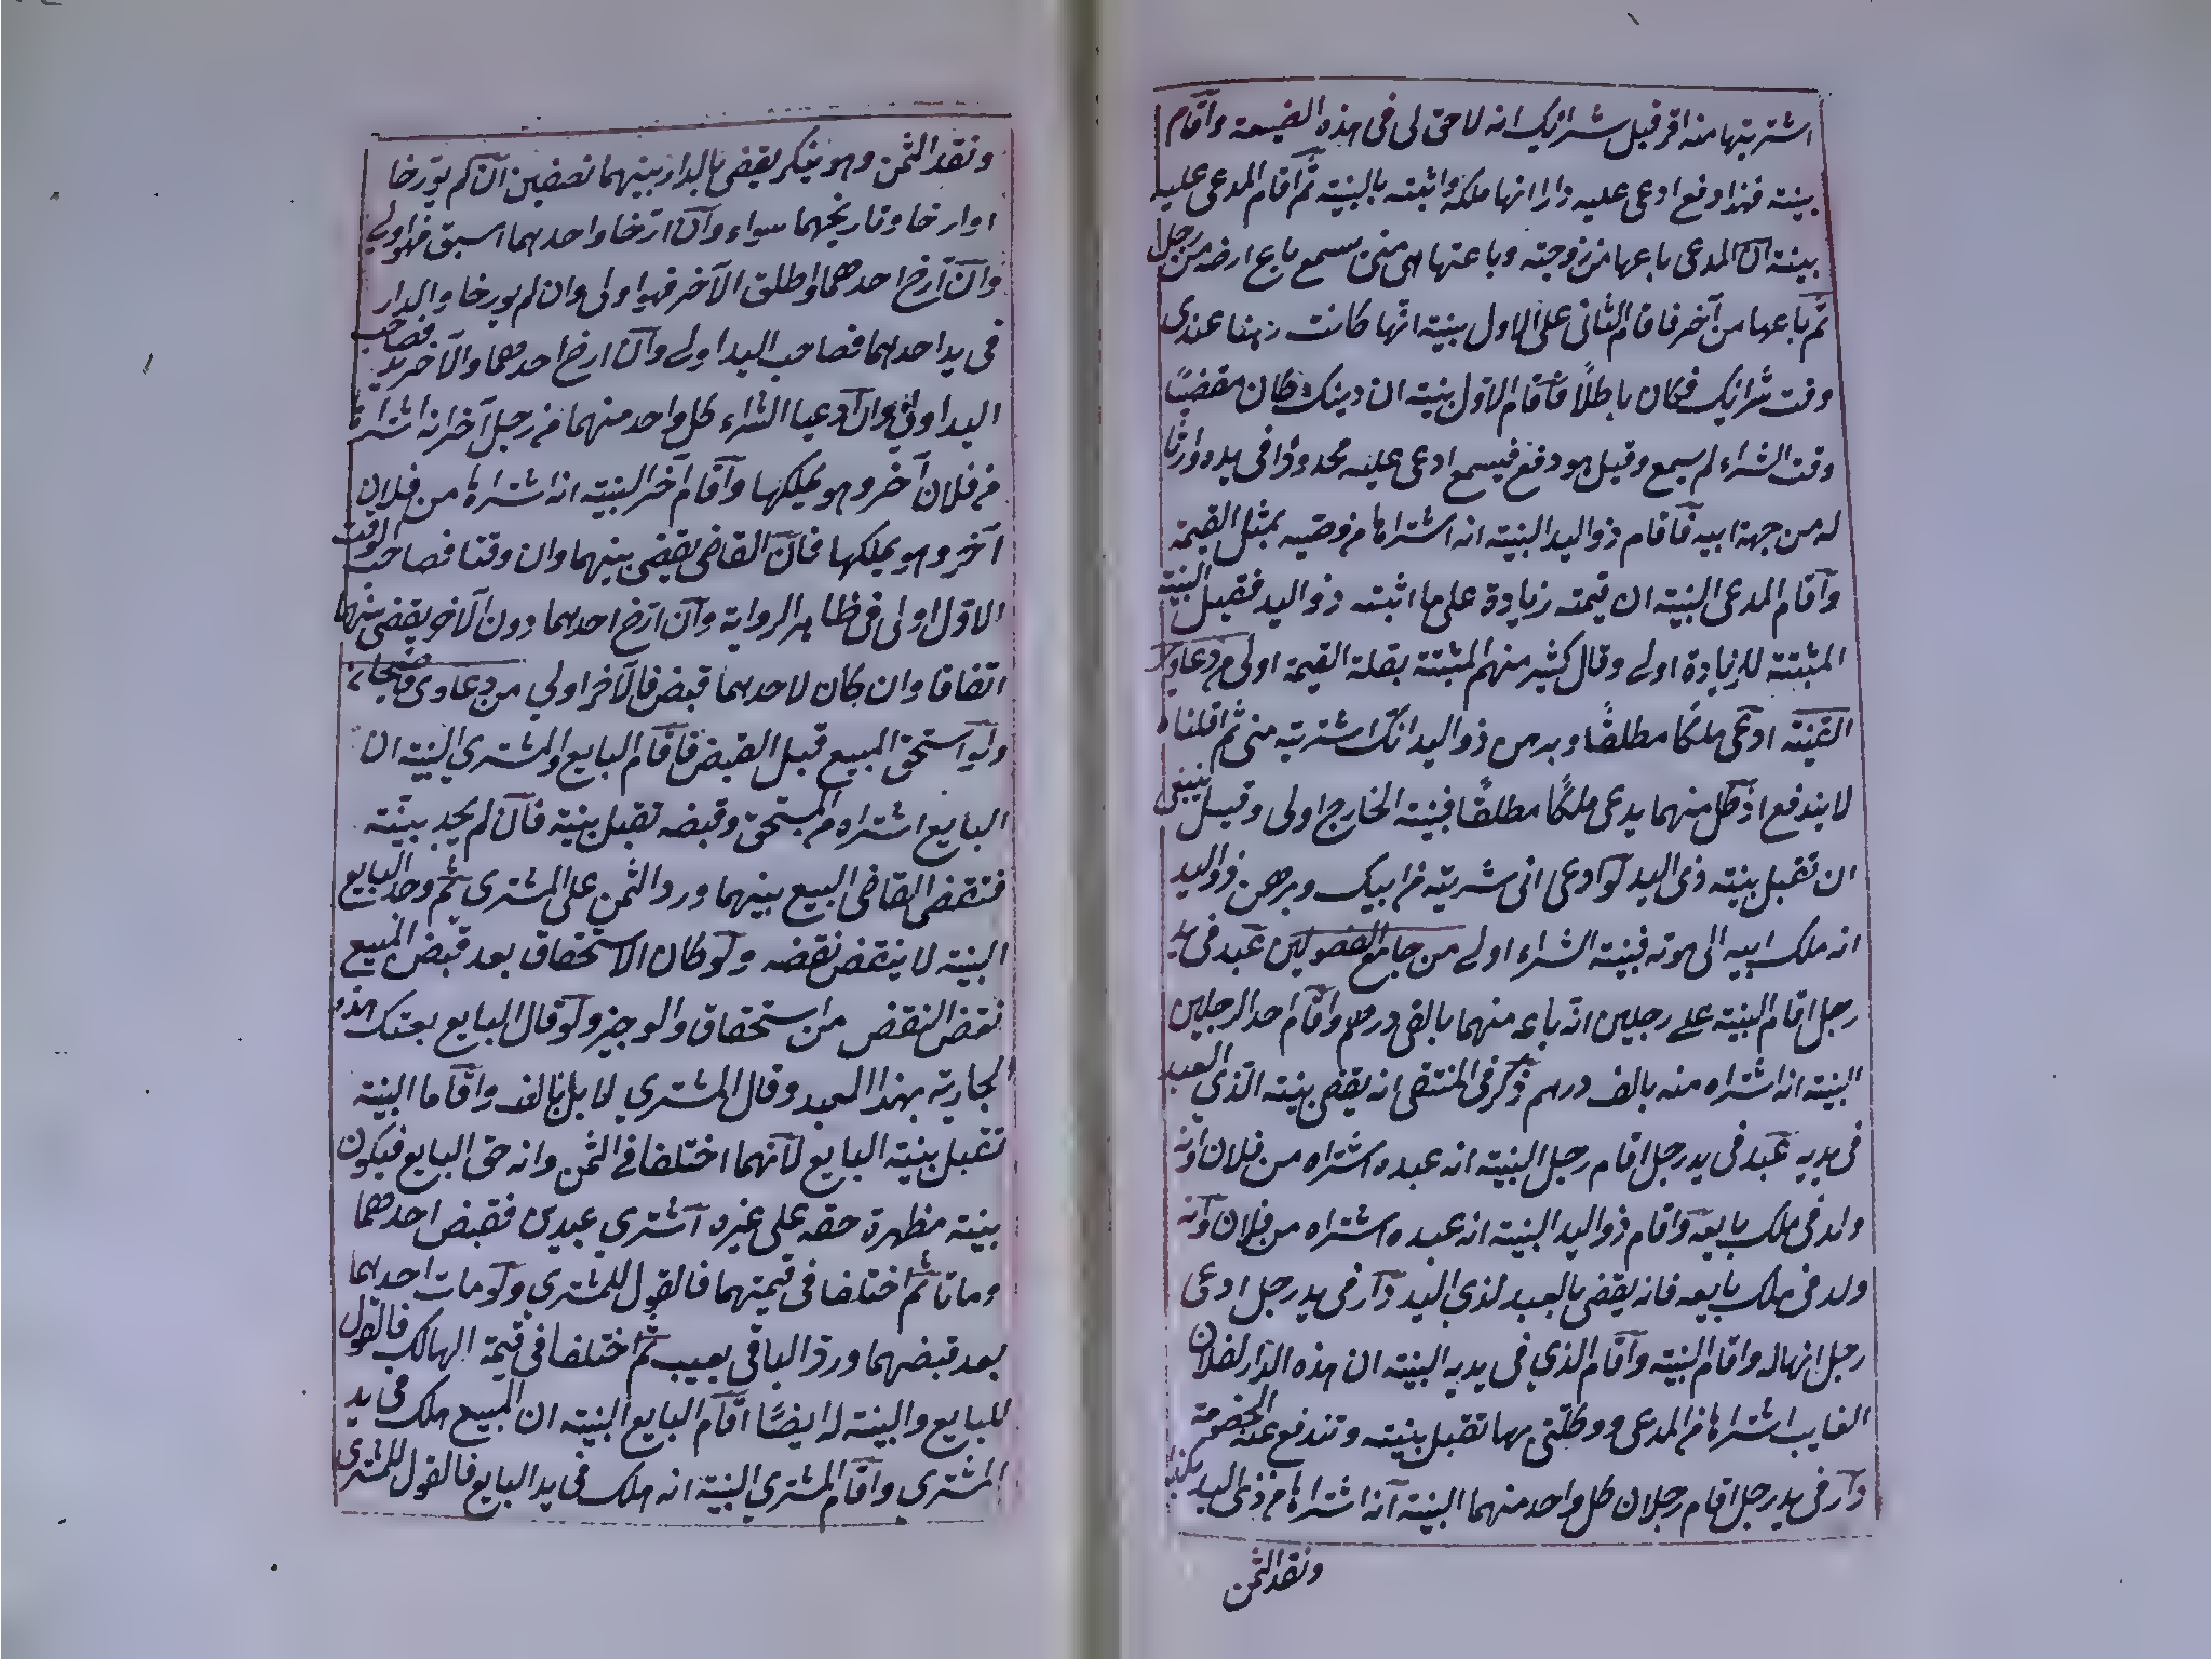 اشتريتها منه اقر قبل شرائك انه لا حق لى فى هذه الضيعة واقام
بينته فهذا دفع ادعى عليه دارا انها ملكه واثبته بالبينة ثم اقام المدعى عليه
بينته ان المدعى باعها من زوجته وباعتها هى منى يسمع باع ارضه من رجل
ثم باعها من آخر فاقام الثانى على الاول بينة انها كانت رهنا عندى
وقت شرائك فكان باطلا فاقام الاول بينة ان دينك كان مقضيا
وقت الشراء لم يسمع وقيل هو دفع فيسمع ادعى عليه محدودا فى يده وارثا
له من جهة ابيه فاقام ذو اليد البينة انه اشتراها من وصيه بمثل القيمة
واقام المدعى البينة ان قيمته زيادة على ما اثبته ذو اليد فقيل البينة
المثبتة للزيادة اولى وقال كثير منهم المثبتة بقلة القيمة اولى من دعاوى
القنية ادعى ملكا مطلقا وبرهن ذو اليد انك اشتريته منى ثم اقلنا
لا يندفع اذ كل منهما يدعى ملكا مطلقا فبينة الخارج اولى وقيل ينبغى
ان تقبل بينة ذى اليد لو ادعى انى شريته من ابيك وبرهن ذو اليد
انه ملك ابيه الى موته فبينة الشراء اولى من جامع الفصولين عبد فى يد
رجل اقام البينة على رجلين انه باعه منهما بالفى درهم واقام احد الرجلين
البينة انه اشتراه منه بالف درهم ذكر فى المنتقى انه يقضى ببينة الذى العبد
فى يديه عبد فى يد رجل اقام رجل البينة انه عبده اشتراه من فلان وانه
ولد فى ملك بايعه واقام ذو اليد البينة انه عبده اشتراه من فلان وانه
ولد فى ملك بايعه فانه يقضى بالعبد لذى اليد دار فى يد رجل ادعى
رجل انها له واقام البينة واقام الذى فى يديه البينة ان هذه الدار لفلان
الغايب اشتراها من المدعى ووكلنى بها تقبل بينته وتندفع عنه الخصومة
دار فى يد رجل اقام رجلان كل واحد منهما البينة انه اشتراها من ذى اليد
ونقد الثمن
ونقد الثمن وهو ينكر يقضى بالدار بينهما نصفين ان لم يورخا
او ارخا وتاريخهما سواء وان ارخا واحدهما اسبق فهو اولى
وان ارخ احدهما واطلق الآخر فهو اولى وان لم يورخا والدار
فى يد احدهما فصاحب اليد اولى وان ارخ احدهما والآخر يد فصاحب
اليد اولى وان ادعيا الشراء كل واحد منهما من رجل آخر انه اشتراه
من فلان آخر وهو يملكها واقام آخر البينة انه اشتراها من فلان
آخر وهو يملكها فان القاضى يقضى بينهما وان وقتا فصاحب الوقت
الاول اولى فى ظاهر الرواية وان ارخ احدهما دون الآخر يقضى بينهما
اتفاقا وان كان لاحدهما قبض فالآخر اولى من دعاوى قاضيخان
ولو استحق المبيع قبل القبض فاقام البايع والمشترى البينة ان
البايع اشتراه من المستحق وقبضه تقبل بينته فان لم يجد بينة
فنقض القاضى البيع بينهما ورد الثمن على المشترى ثم وجد البايع
البينة لا ينقض نقضه ولو كان الاستحقاق بعد قبض المبيع
نقض النقض من استحقاق والوجيز ولو قال البايع بعتك هذه
الجارية بهذا العبد وقال المشترى لا بل بالف واقاما البينة
تقبل بينة البايع لانهما اختلفا فى الثمن وانه حق البايع فيكون
بينته مظهرة حقه على غيره اشترى عبدين فقبض احدهما
وماتا ثم اختلفا فى قيمتهما فالقول للمشترى ولو مات احدهما
بعد قبضهما ورد الباقى بعيب ثم اختلفا فى قيمة الهالك فالقول
للبايع والبينة له ايضا اقام البايع البينة ان المبيع هلك فى يد
المشترى واقام المشترى البينة انه هلك فى يد البايع فالقول للمشترى